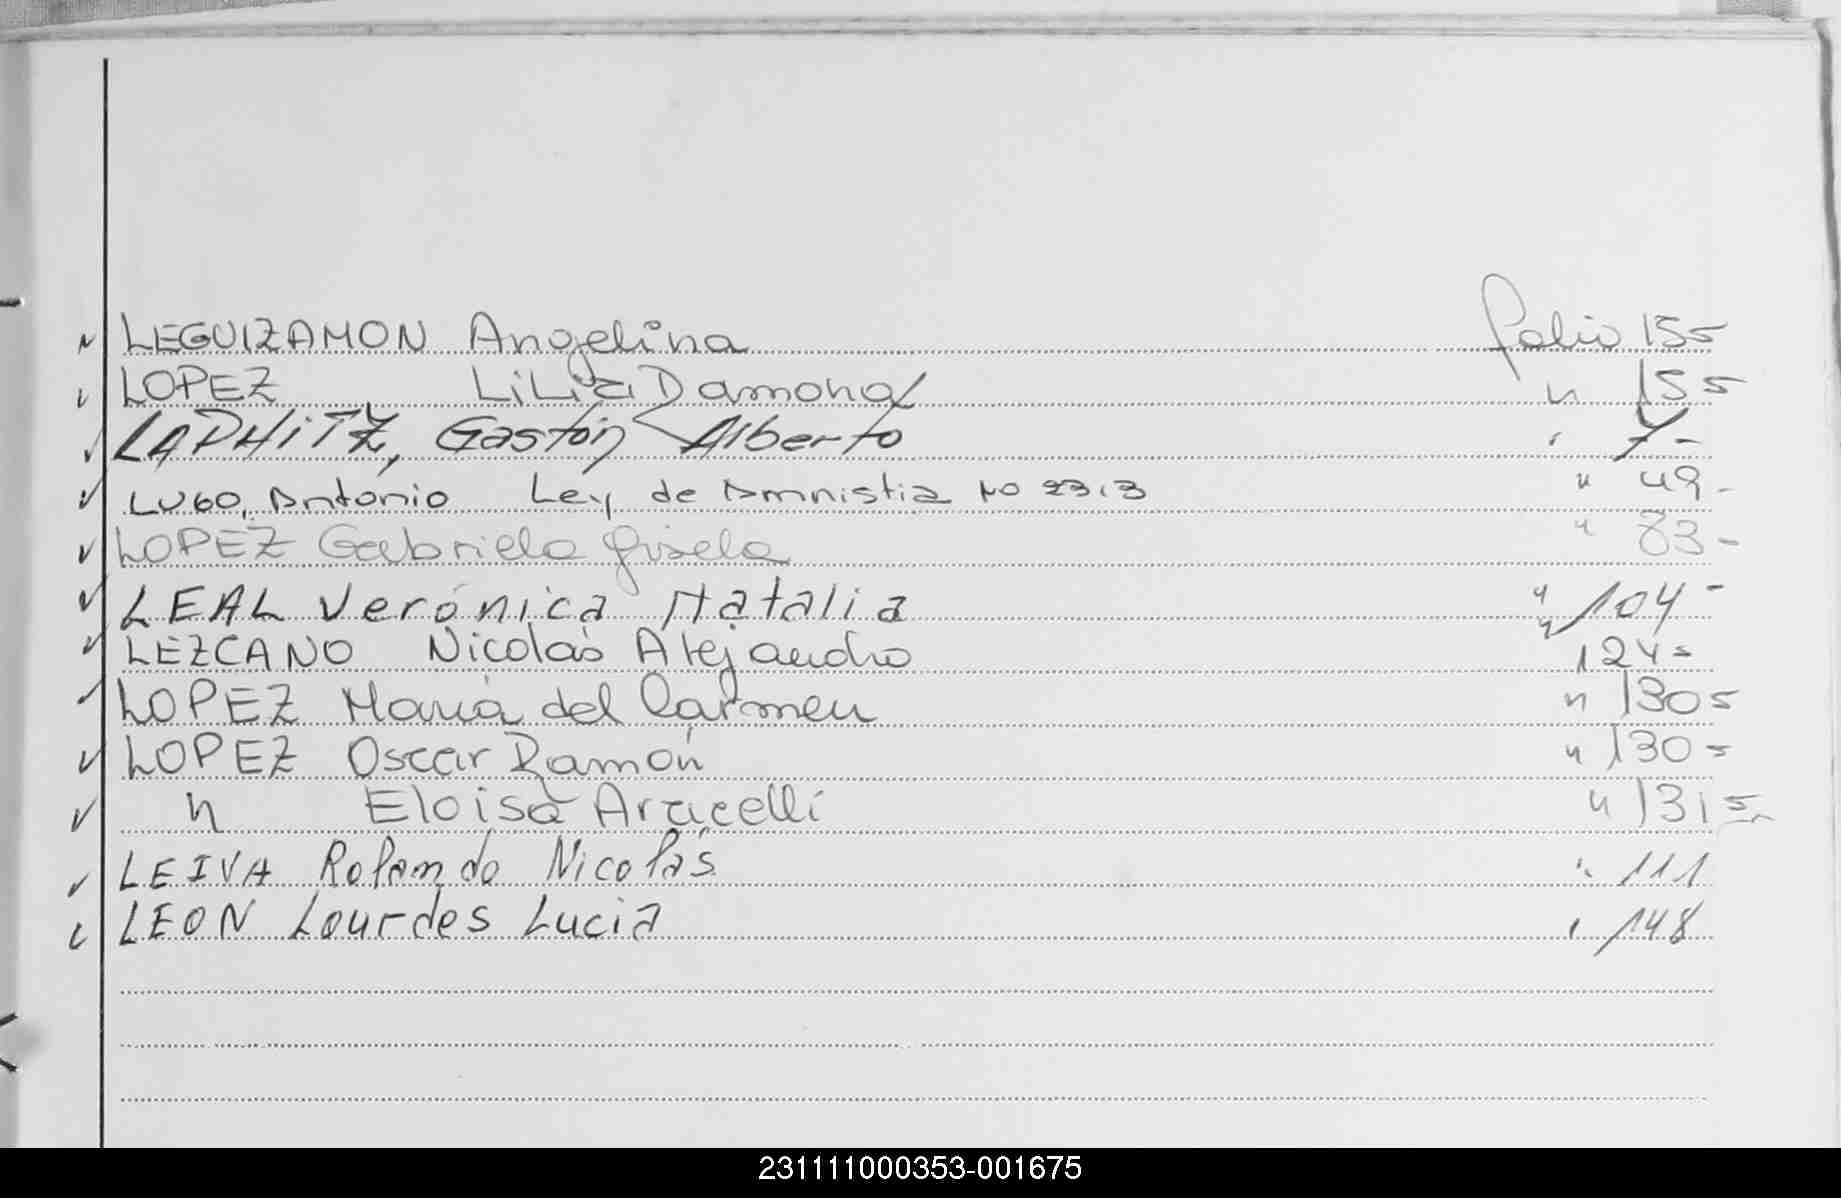 LEGUIZAMON Angelina folio 155
LOPEZ Lilia Damona " 155
LAPHITZ, Gastón Alberto " 7-
LUGO, Antonio Ley de Amnistia No 2313 " 49-
LOPEZ Gabriela Gisela " 83-
LEAL Verónica Natalia " 104-
LEZCANO Nicolás Alejandro " 124=
LOPEZ María del Carmen " 130=
LOPEZ Oscar Ramón " 130=
" Eloisa Aracelli " 131=
LEIVA Rolando Nicolás " 111
LEON Lourdes Lucia " 148
231111000353-001675